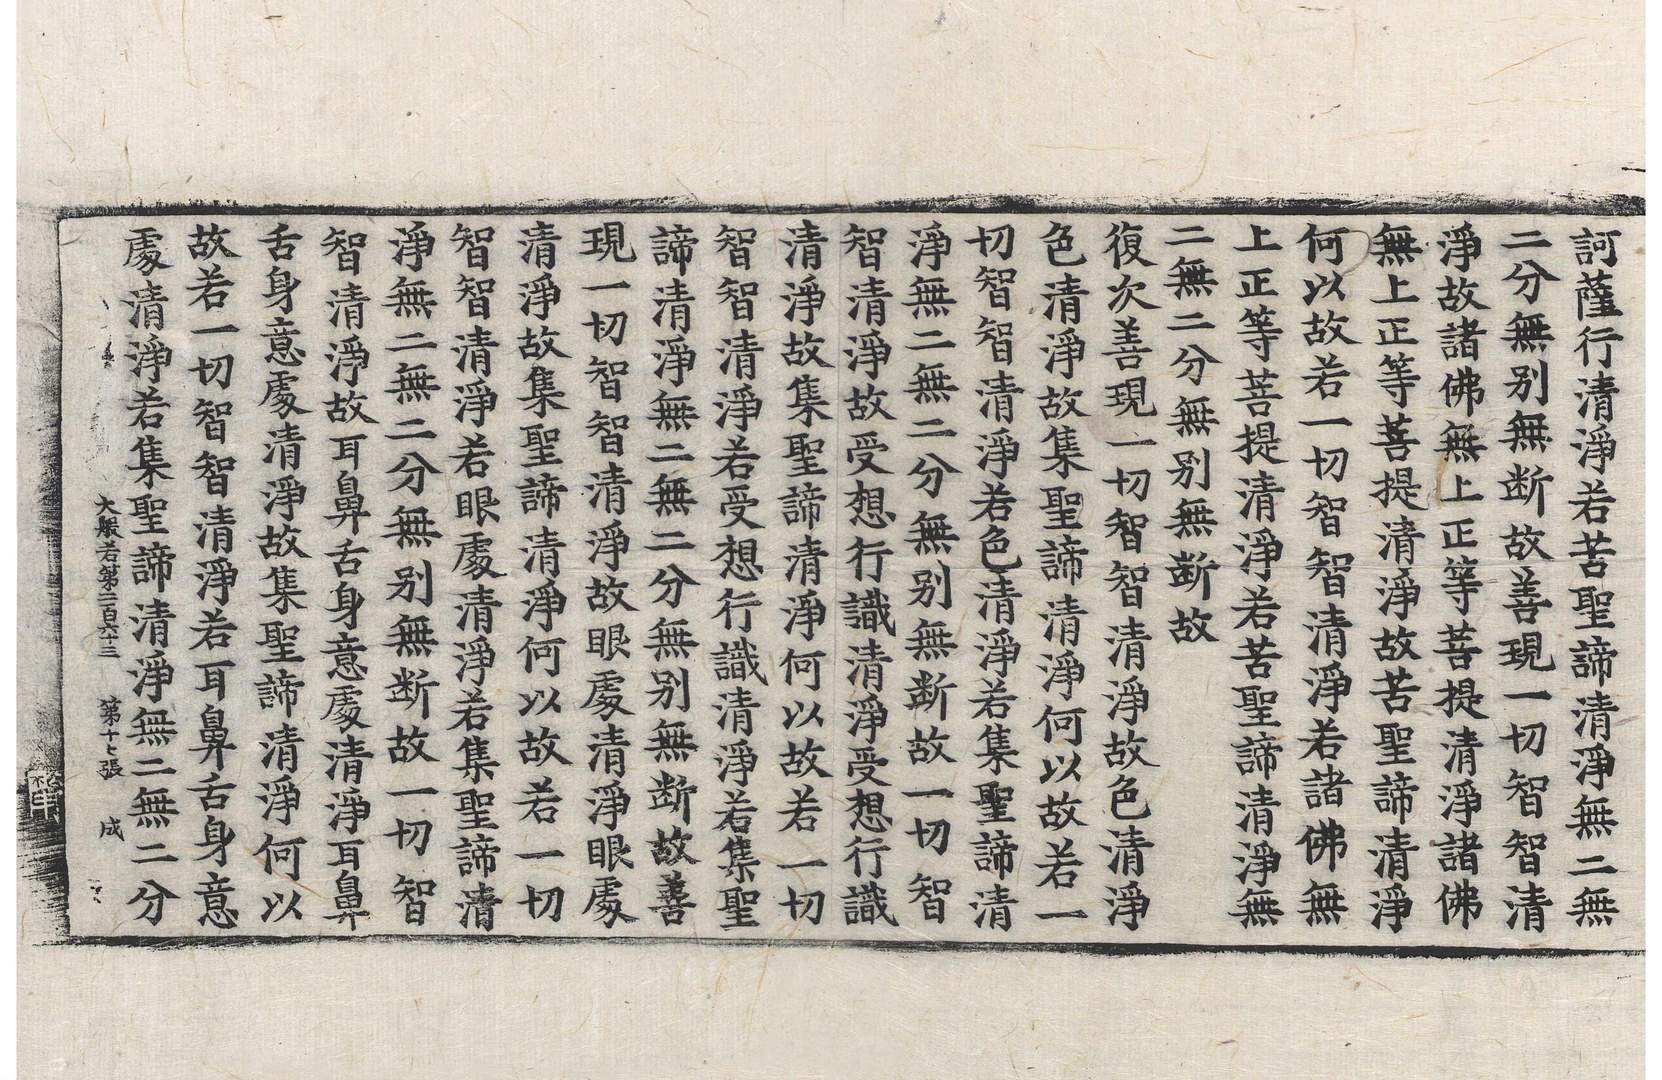 訶薩行清淨若苦聖諦清淨無二無
二分無别無断故善現一切智智清
淨故諸佛無上正等菩提清淨諸佛
無上正等菩提清淨故苦聖諦清淨
何以故若一切智智清淨若諸佛無
上正等菩提清淨若苦聖諦清淨無
二無二分無别無断故
復次善現一切智智清淨故色清淨
色清淨故集聖諦清淨何以故若一
切智智清淨若色清淨若集聖諦清
淨無二無二分無别無断故一切智
智清淨故受想行識清淨受想行識
清淨故集聖諦清淨何以故若一切
智智清淨若受想行識清淨若集聖
諦清淨無二無二分無别無断故善
現一切智智清淨故眼處清淨眼處
清淨故集聖諦清淨何以故若一切
智智清淨若眼處清淨若集聖諦清
淨無二無二分無别無断故一切智
智清淨故耳鼻舌身意處清淨耳鼻
舌身意處清淨故集聖諦清淨何以
故若一切智智清淨若耳鼻舌身意
處清淨若集聖諦清淨無二無二分
大般若第二百六十三 第十七張 成